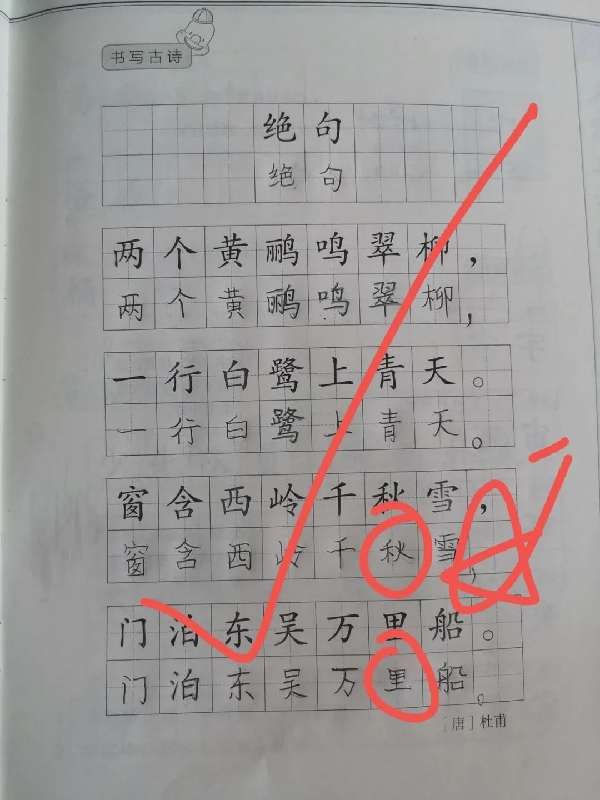 书写古诗
绝句
绝句
两个黄鹂鸣翠柳，
两个黄鹂鸣翠柳，
一行白鹭上青天。
一行白鹭上青天。
窗含西岭千秋雪，
窗含西岭千秋雪，
门泊东吴万里船。
门泊东吴万里船。
［唐］杜甫